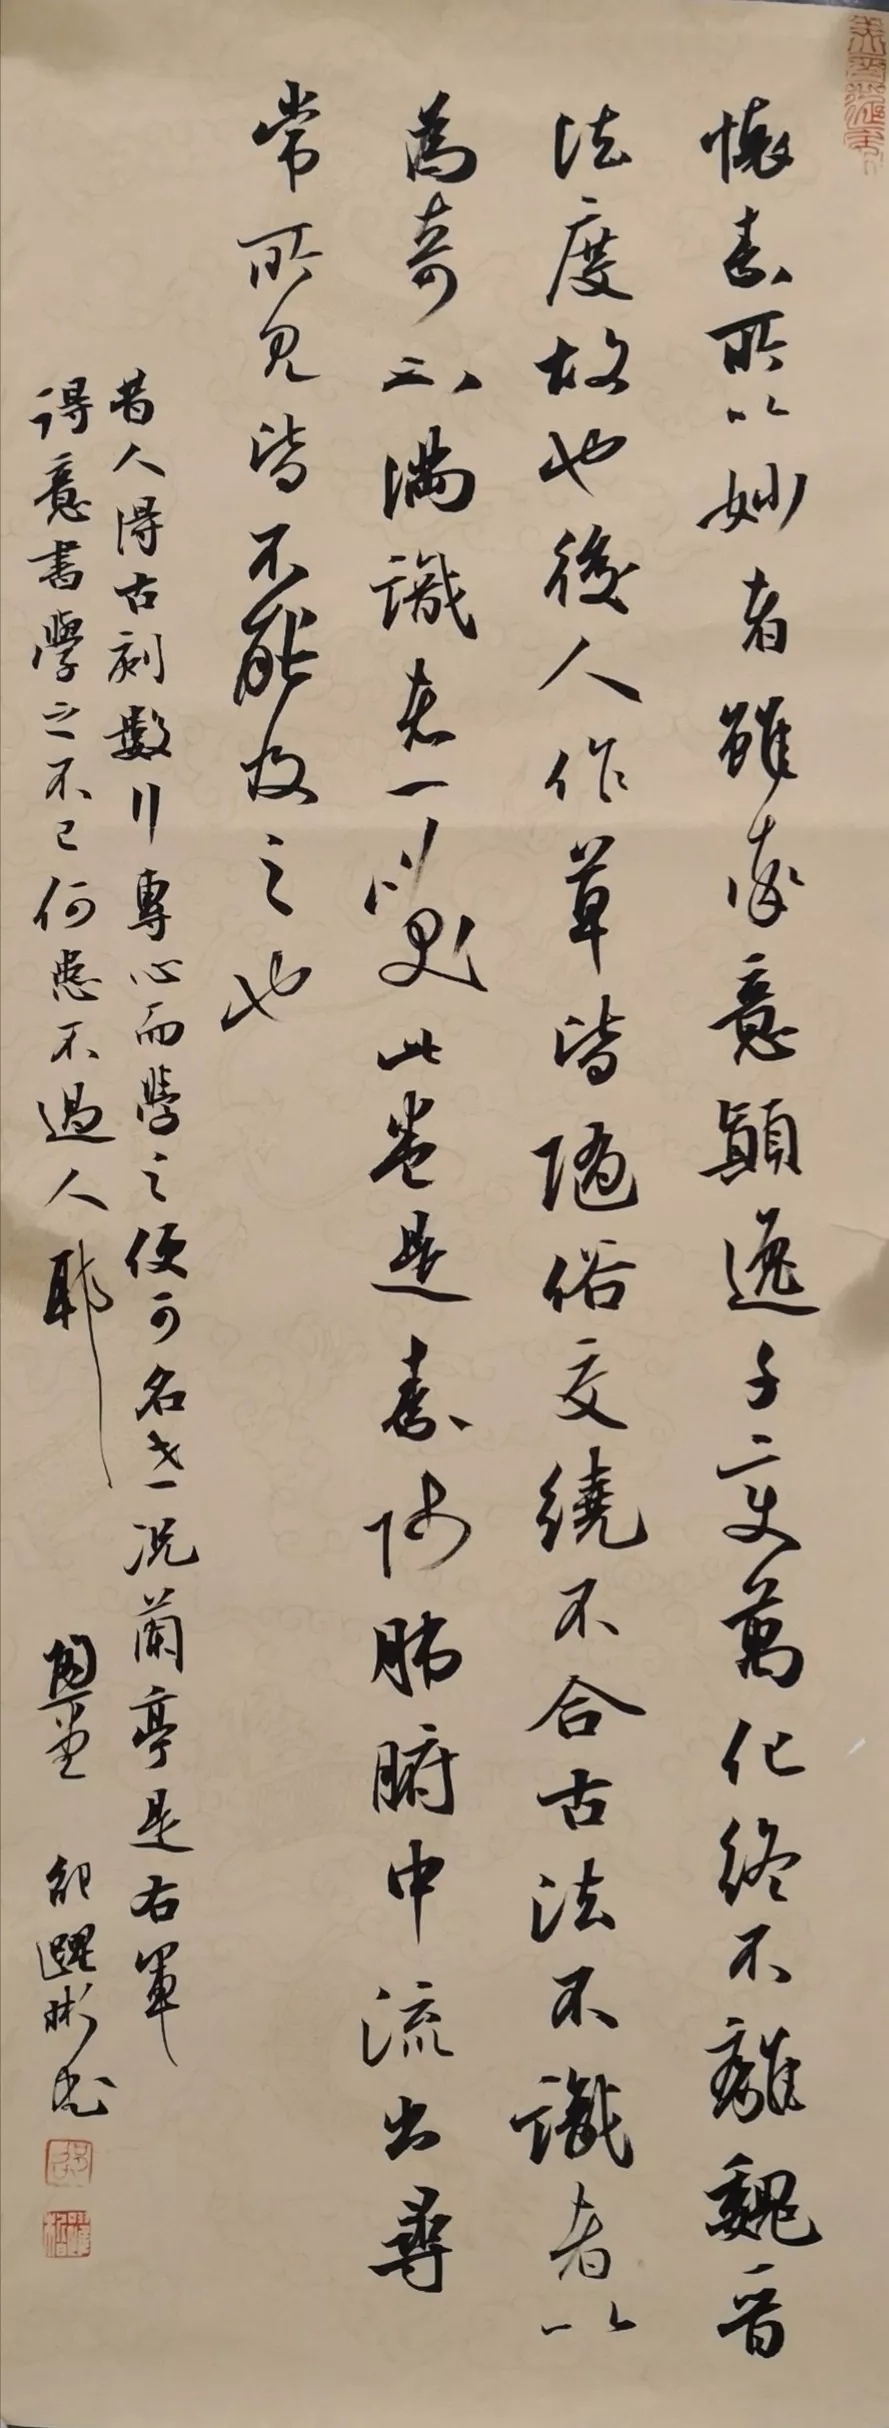 懷素所以妙者雖率意顛逸千變萬化終不離魏晋
法度故也後人作草皆隨俗交繞不合古法不識者以
為奇不滿識者一笑此卷是素師肺腑中流出尋
常所見皆不能及之也
昔人得古刻數行專心而學之便可名世况蘭亭是右軍
得意書學之不已何患不過人耶
躍彬書